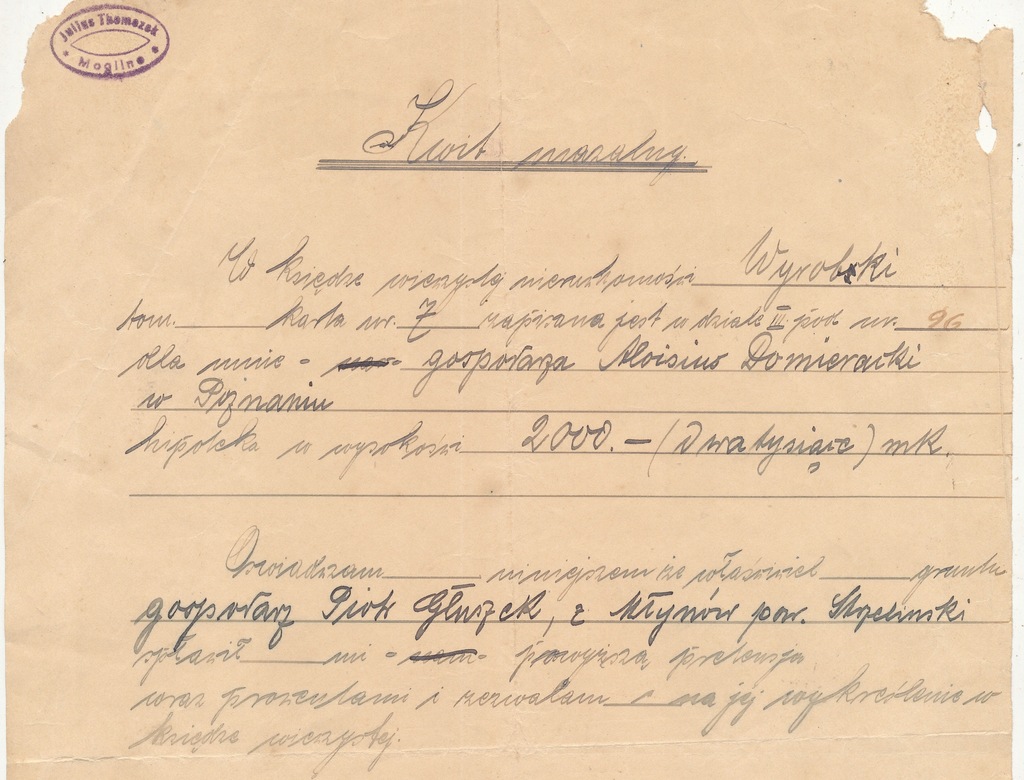 Julius Thomazek
* Mogilno *
Kwit mazalny.
W księdze wieczystej nieruchomości Wyrobski
tom. karta nr. 7 zapisana jest w dziale III. pod nr. 96
dla mnie - - gospodarza Aloisius Domieracki
w Poznaniu
hipoteka w wysokości 2000.— (dwa tysiące) mk.
Oswiadczam niniejszem że właściciel gruntu
gospodarz Piotr Głuszek, z Młynów pow. Strzelinski
spłacił mi - - powyższą pretensja
wraz procentami i zezwalam na jej wykreślenie w
księdze wieczystej.